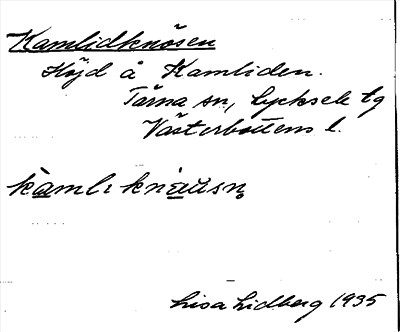 Kamlidknösen
Höjd å Kamliden.
Tärna sn, Lycksele tg
Västerbottens l.
kàmlɩ knäüsn̥
Lisa Lidberg 1935